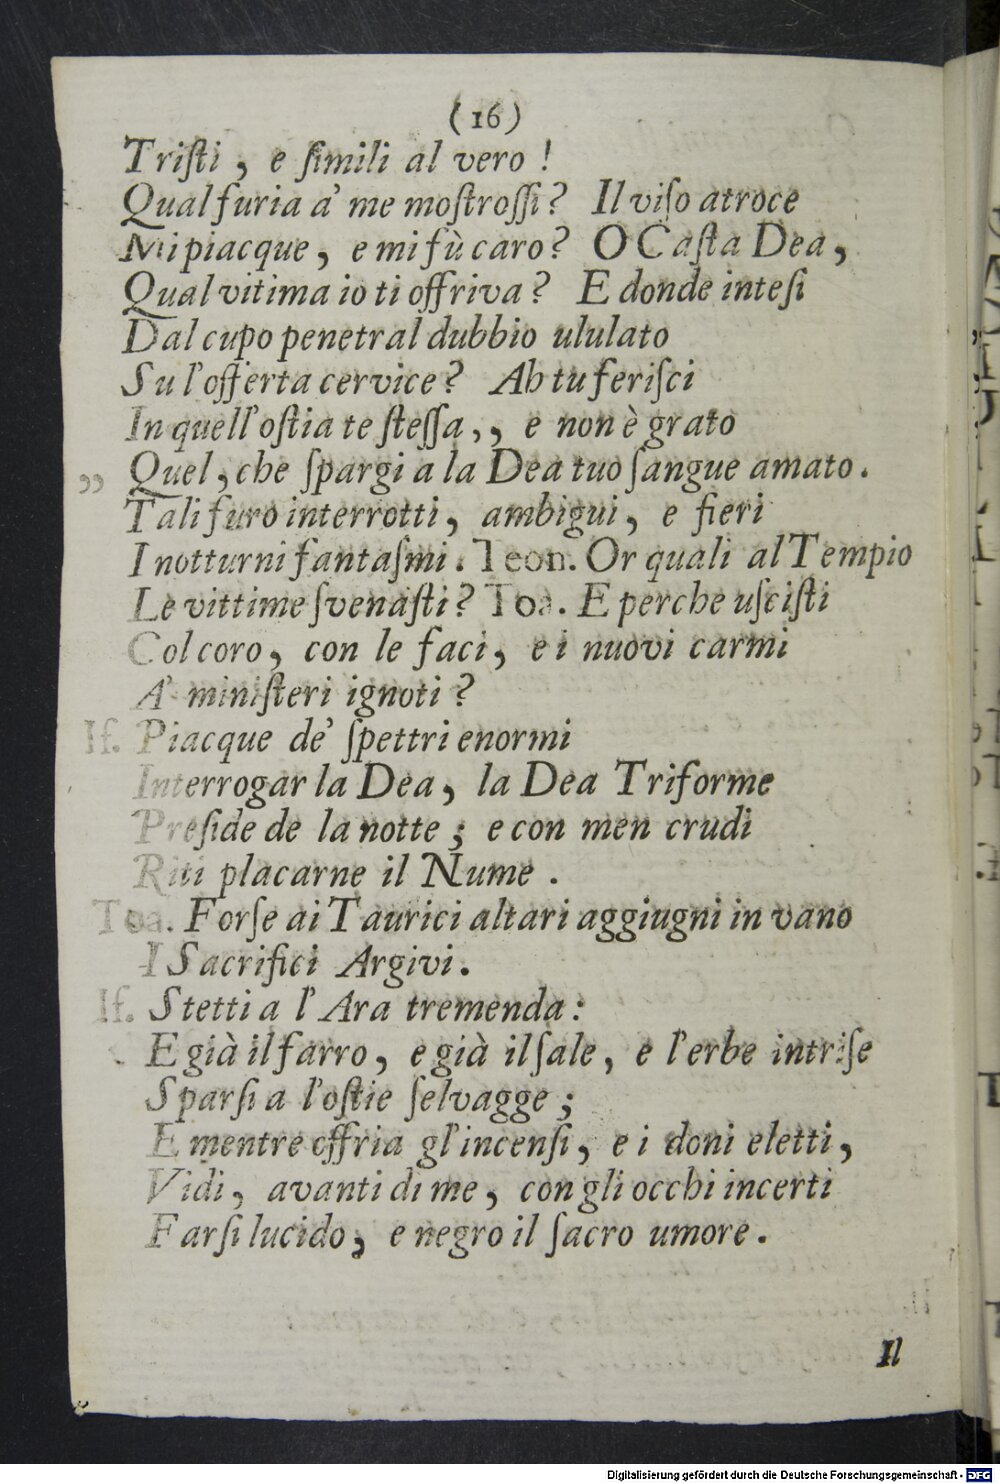 (16)
Triſti, e ſimili al vero!
Qual furia a' me moſtroſſi? Il viſo atroce
Mi piacque, e mi fù caro? O Caſta Dea,
Qual vitima io ti offriva? E donde inteſi
Dal cupo penetral dubbio ululato
Su l'offerta cervice? Ah tu feriſci
In quell' oſtia te ſteſſa,, e non è grato
„ Quel, che ſpargi a la Dea tuo ſangue amato.
Tali furo interrotti, ambigui, e fieri
I notturni fantaſmi. Teon. Or quali al Tempio
Le vittime ſvenaſti? Toa. E perche uſciſti
Col coro, con le faci, e i nuovi carmi
A' miniſteri ignoti?
If. Piacque de' ſpettri enormi
Interrogar la Dea, la Dea Triforme
Preſide de la notte; e con men crudi
Riti placarne il Nume.
Toa. Forſe ai Taurici altari aggiugni in vano
I Sacrifici Argivi.
If. Stetti a l' Ara tremenda:
E già il farro, e già il ſale, e l'erbe intriſe
Sparſi a l'oſtie ſelvagge;
E mentre offria gl'incenſi, e i doni eletti,
Vidi, avanti di me, con gli occhi incerti
Farſi lucido, e negro il ſacro umore.
Il
Digitalisierung gefördert durch die Deutsche Forschungsgemeinschaft - DFG